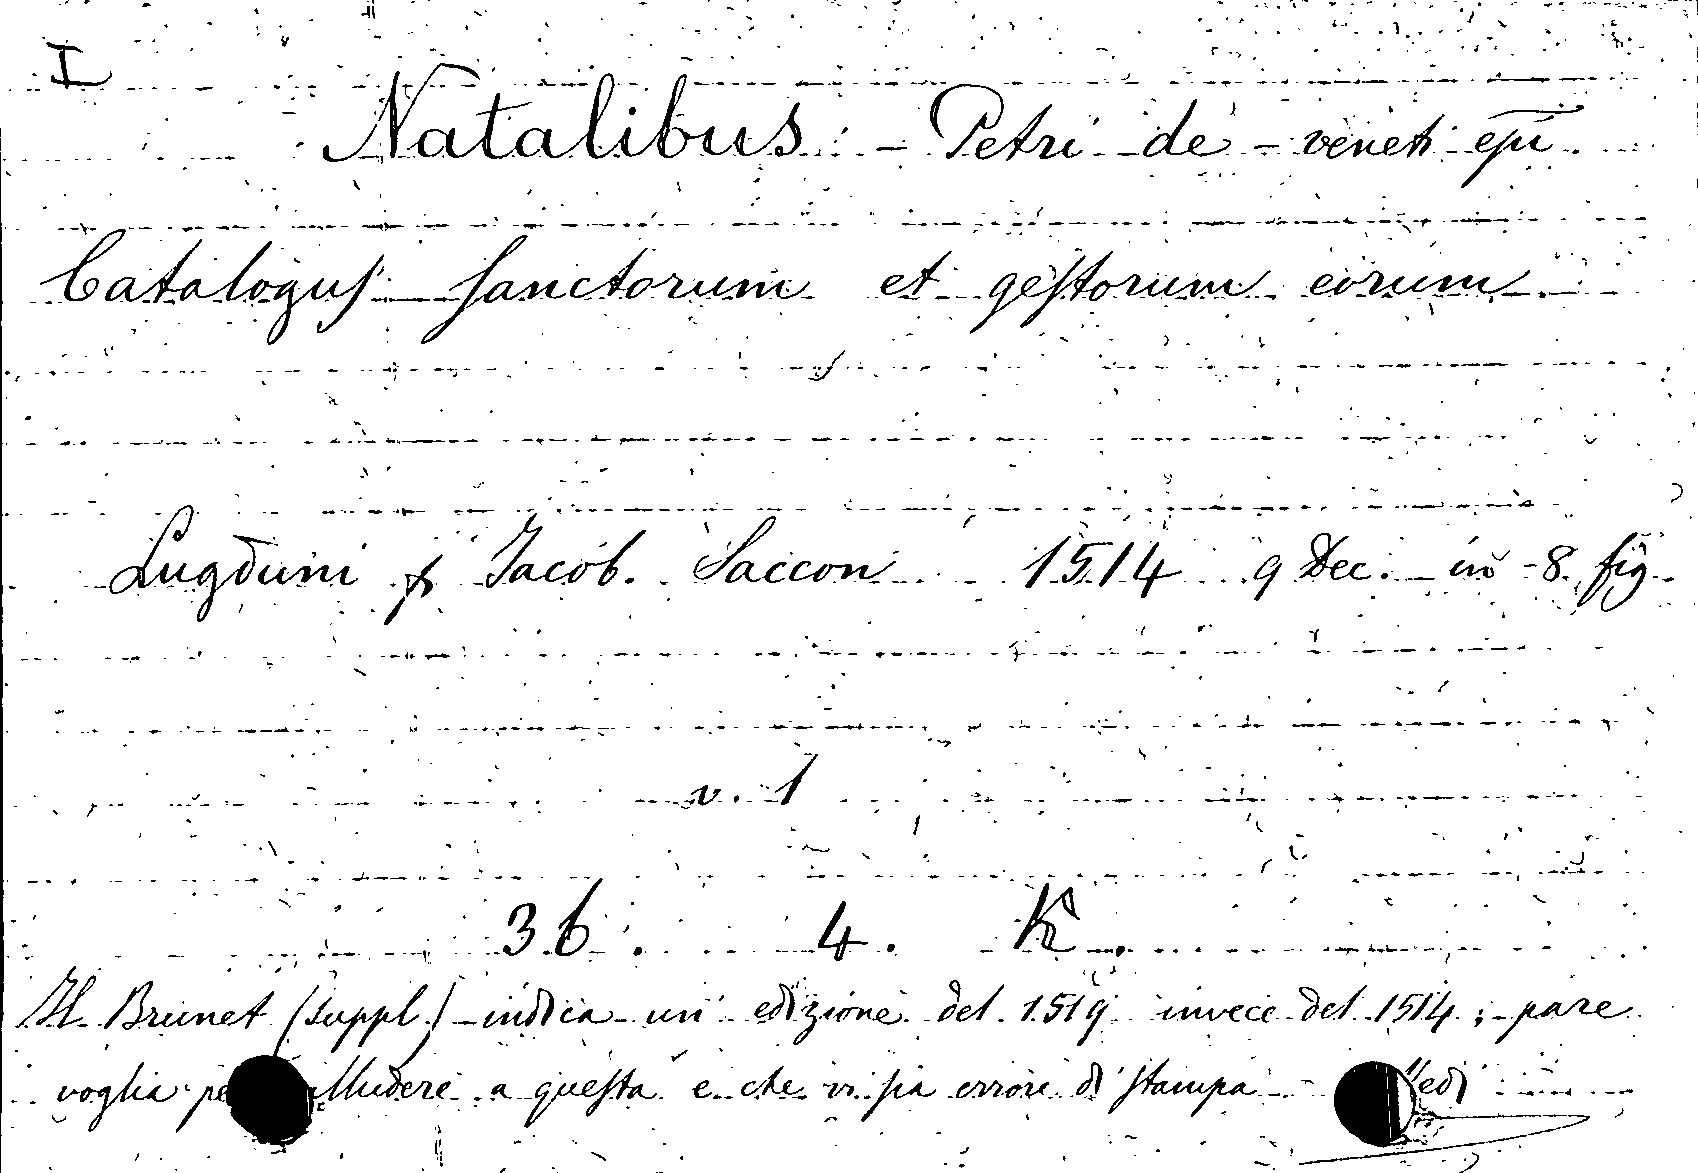 I
Natalibus - Petri de - veneti epi
Catalogus sanctorum et gestorum eorum
Lugduni p Jacob. Saccon 1514 9 Dec. in 8. fig.
v. 1
36. 4. K.
Il Brunet (suppl.) indica un edizione del 1519 invece del 1514; pare
voglia alludere a questa e che vi sia errore di stampa -